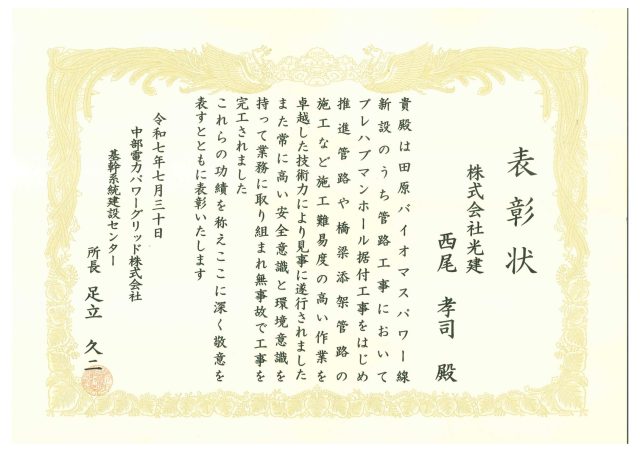 表彰状
株式会社光建
西尾 孝司 殿
貴殿は田原バイオマスパワー線
新設のうち管路工事において
プレハブマンホール据付工事をはじめ
推進管路や橋梁添架管路の
施工など施工難易度の高い作業を
卓越した技術力により見事に遂行されました
また常に高い安全意識と環境意識を
持って業務に取り組まれ無事故で工事を
完工されました
これらの功績を称えここに深く敬意を
表すとともに表彰いたします
令和七年七月三十日
中部電力パワーグリッド株式会社
基幹系統建設センター
所長 足立 久二